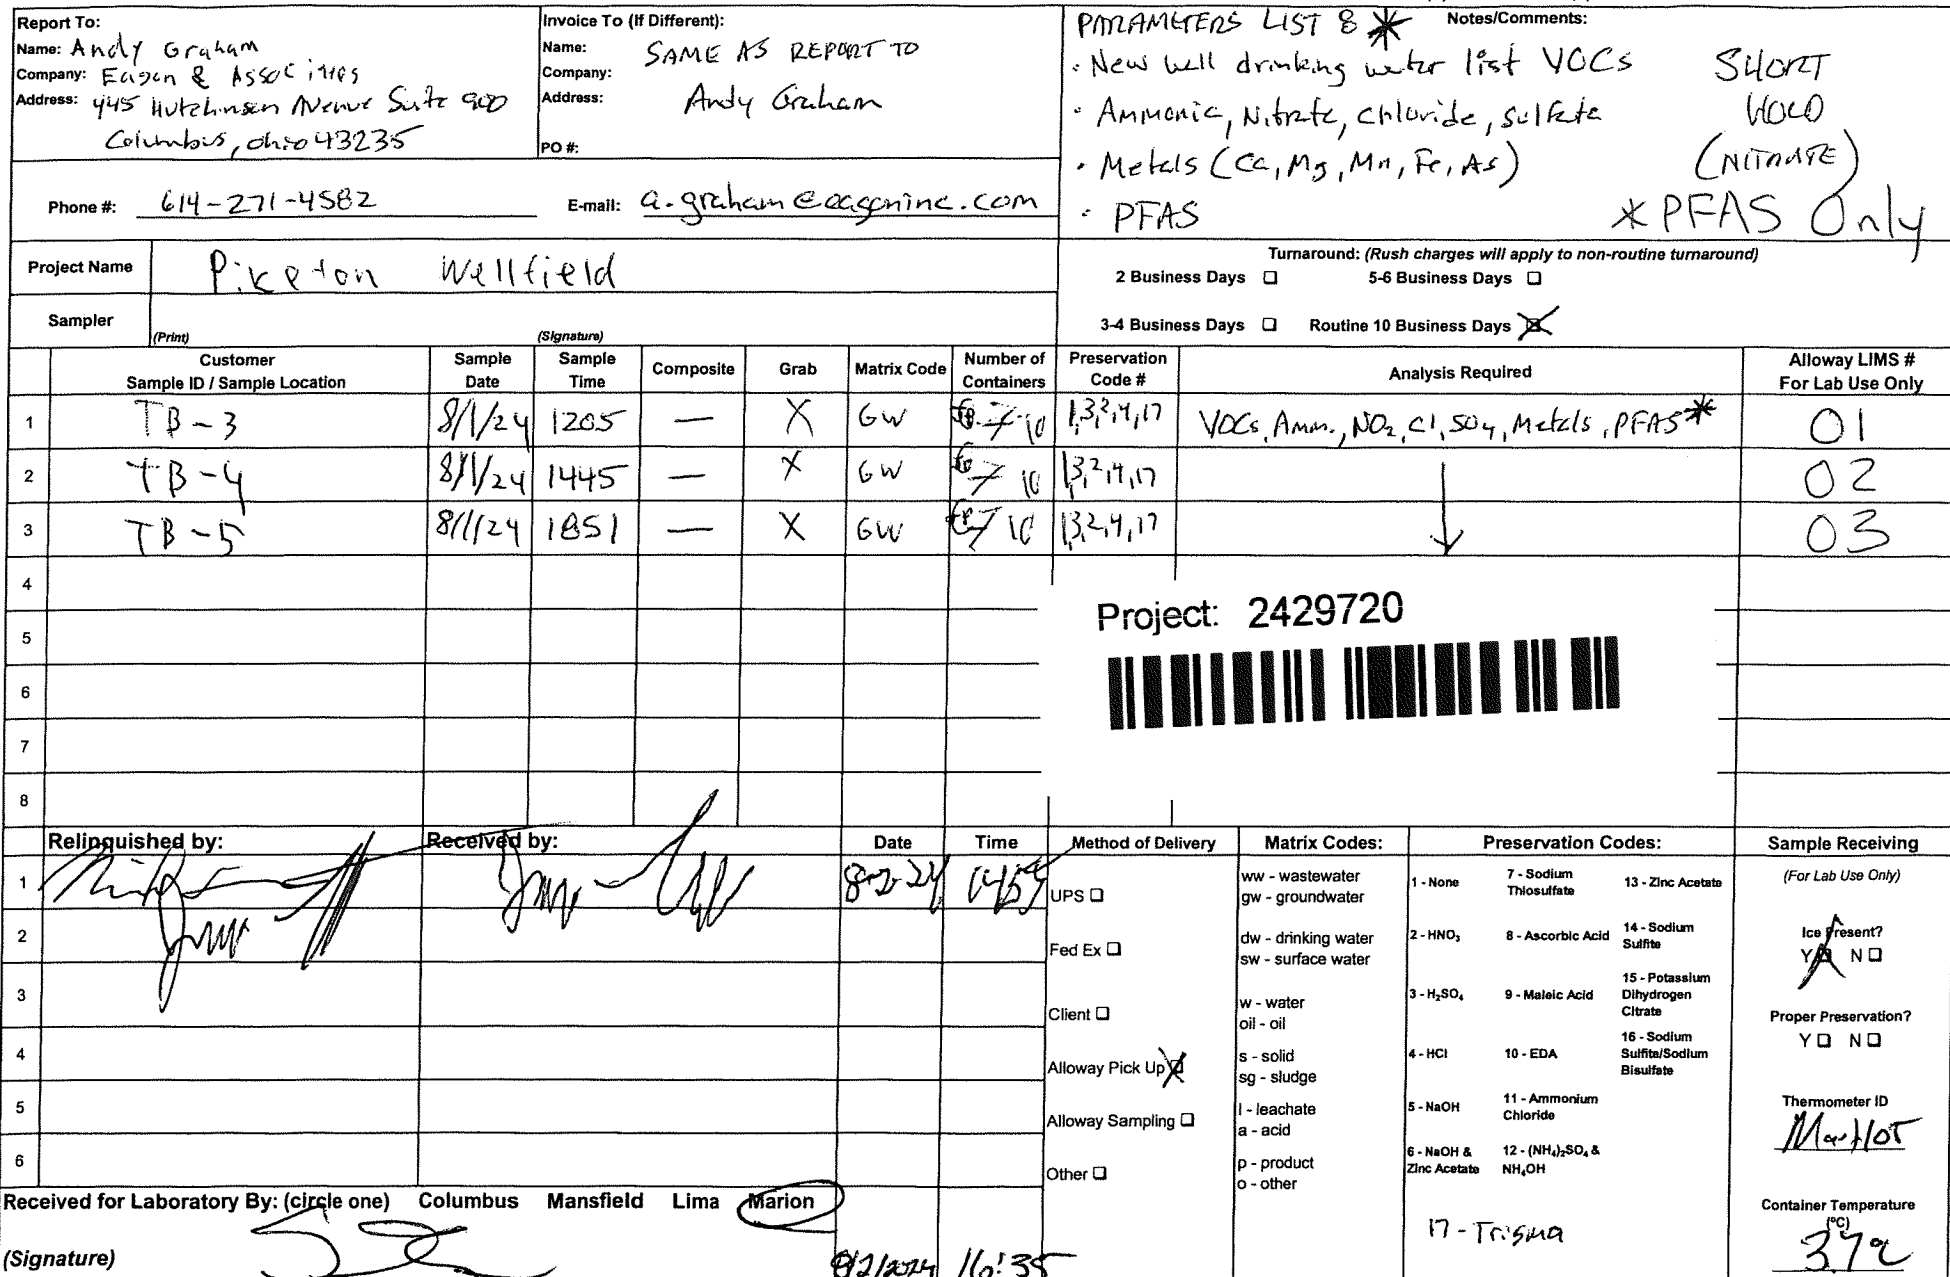 Report To:
Name: Andy Graham
Company: Eagon & Associates
Address: 445 Hutchinson Avenue Suite 900
Columbus, Ohio 43235
Invoice To (If Different):
Name: SAME AS REPORT TO
Company:
Address: Andy Graham
PO #:
Phone #: 614-271-4582
E-mail: a.graham@eagoninc.com
Notes/Comments:
PARAMETERS LIST 8 *
· New well drinking water list VOCs
· Ammonia, Nitrate, Chloride, Sulfate
· Metals (Ca, Mg, Mn, Fe, As)
· PFAS
SHORT
HOLD
(NITRATE)
*PFAS Only
Project Name Piketon Wellfield
Sampler
(Print) (Signature)
Turnaround: (Rush charges will apply to non-routine turnaround)
2 Business Days 5-6 Business Days
3-4 Business Days Routine 10 Business Days
Customer Sample ID / Sample Location Sample Date Sample Time Composite Grab Matrix Code Number of Containers Preservation Code # Analysis Required Alloway LIMS # For Lab Use Only
1 TB-3 8/1/24 1205 — X GW 7 10 1,3,2,4,17 VOCs, Amm., NO2, Cl, SO4, Metals, PFAS* 01
2 TB-4 8/1/24 1445 — X GW 7 10 1,3,2,4,17 02
3 TB-5 8/1/24 1851 — X GW 7 10 1,3,2,4,17 03
4
5
6
7
8
Project: 2429720
Relinquished by: Received by: Date Time
1 8-2-24
2
3
4
5
6
Method of Delivery
UPS
Fed Ex
Client
Alloway Pick Up
Alloway Sampling
Other
Matrix Codes:
ww - wastewater
gw - groundwater
dw - drinking water
sw - surface water
w - water
oil - oil
s - solid
sg - sludge
l - leachate
a - acid
p - product
o - other
Preservation Codes:
1 - None
2 - HNO₃
3 - H₂SO₄
4 - HCl
5 - NaOH
6 - NaOH & Zinc Acetate
7 - Sodium Thiosulfate
8 - Ascorbic Acid
9 - Maleic Acid
10 - EDA
11 - Ammonium Chloride
12 - (NH₄)₂SO₄ & NH₄OH
13 - Zinc Acetate
14 - Sodium Sulfite
15 - Potassium Dihydrogen Citrate
16 - Sodium Sulfite/Sodium Bisulfate
17 - Trisma
Sample Receiving
(For Lab Use Only)
Ice Present?
Y N
Proper Preservation?
Y N
Thermometer ID
Container Temperature
(ºC)
Received for Laboratory By: (circle one) Columbus Mansfield Lima Marion
(Signature) 8/2/2024 16:35